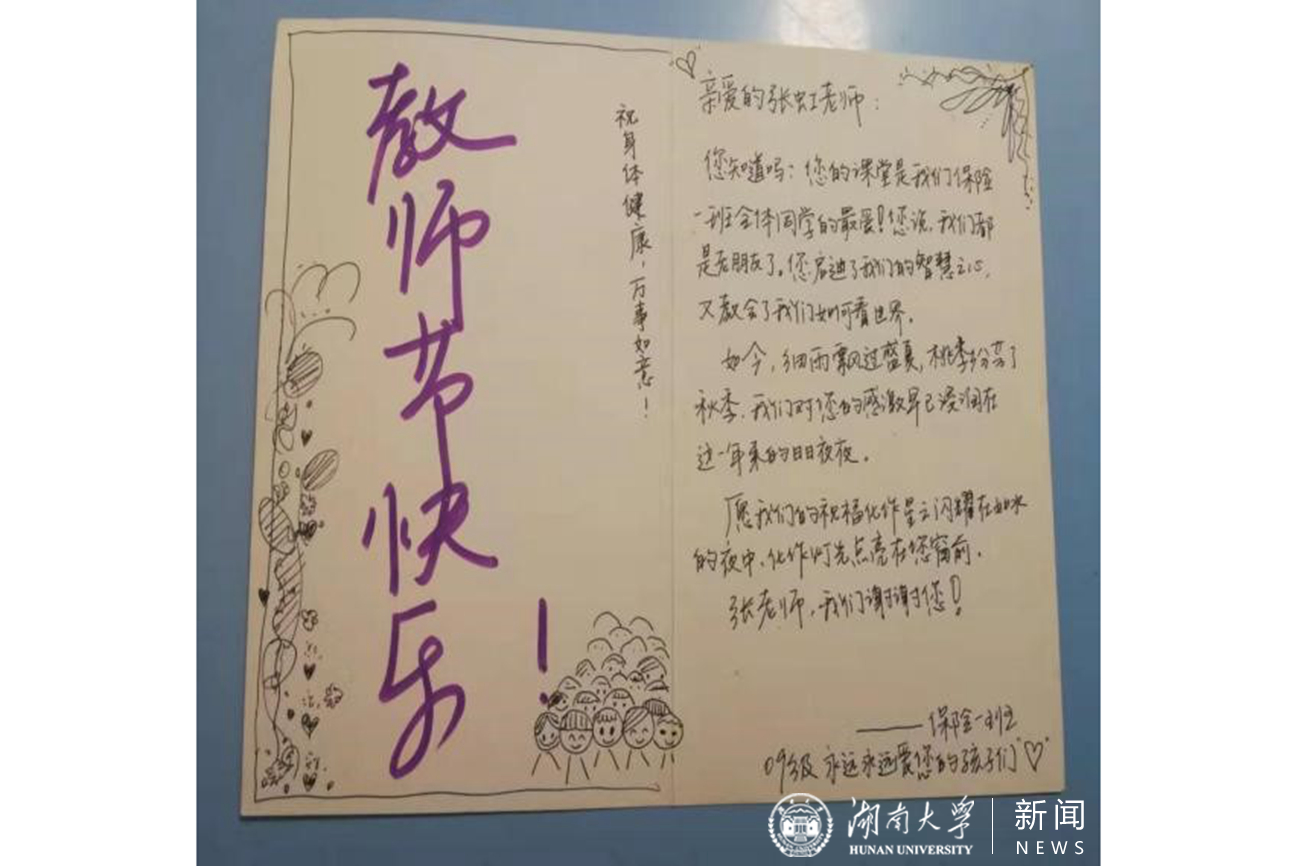 教师节快乐！
祝身体健康，万事如意！
亲爱的张虹老师：
您知道吗：您的课堂是我们保险
一班全体同学的最爱！您说，我们都
是老朋友了。您启迪了我们的智慧之心，
又教会了我们如何看世界。
如今，细雨飘过盛夏，桃李芬芳了
秋季，我们对您的感激早已浸润在
这一年来的日日夜夜。
愿我们的祝福化作星云闪耀在如水
的夜中，化作灯光点亮在您窗前。
张老师，我们谢谢您！
——保险一班
09级 永远永远爱您的孩子们
湖南大学
HUNAN UNIVERSITY
新闻
NEWS